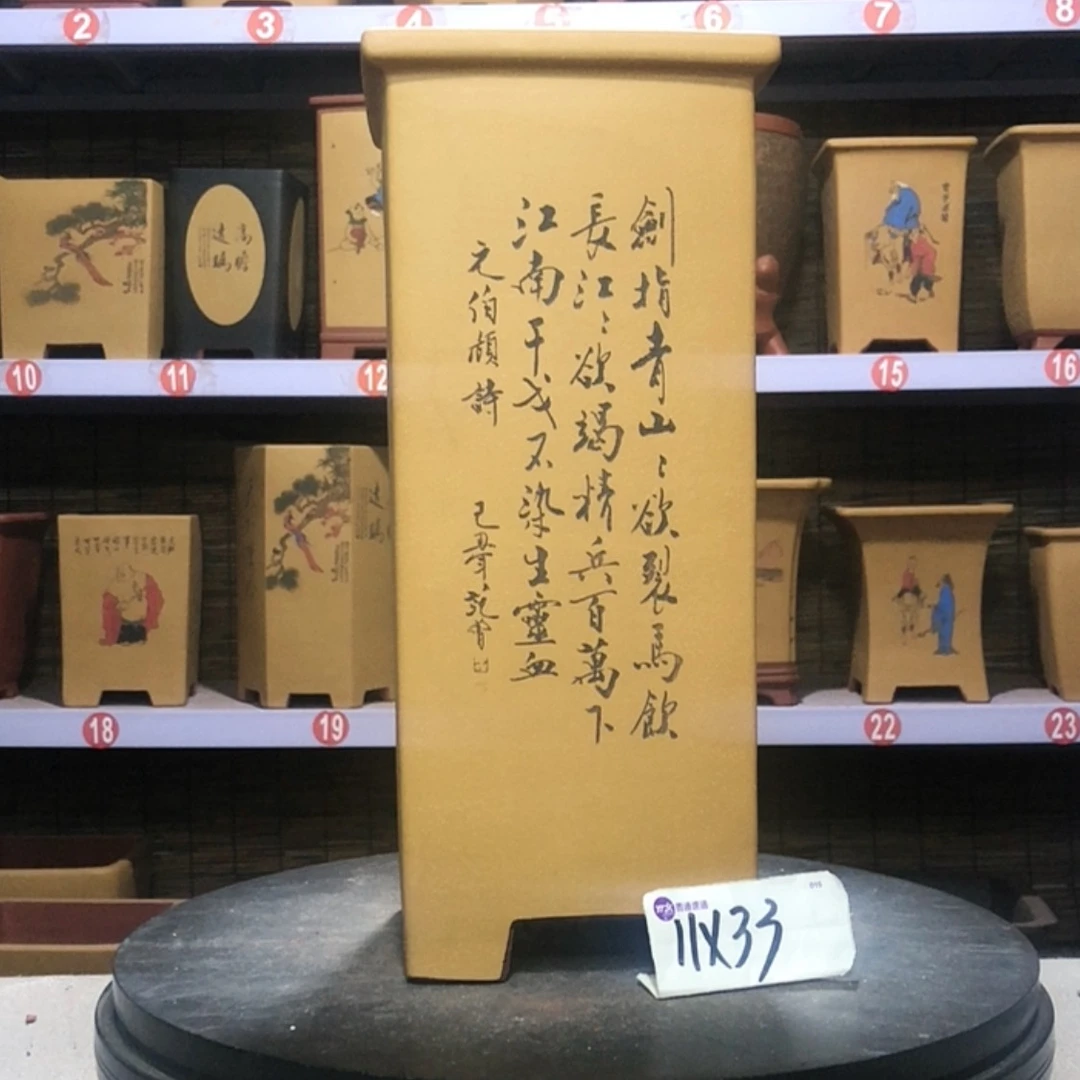 劍指青山〻欲裂馬飲
長江〻欲竭精兵百萬下
江南干戈不染生靈血
元伯顏詩
己丑年
11X33
2
3
4
6
7
8
10
11
12
15
16
18
19
22
23
高瞻
遠矚
遠矚